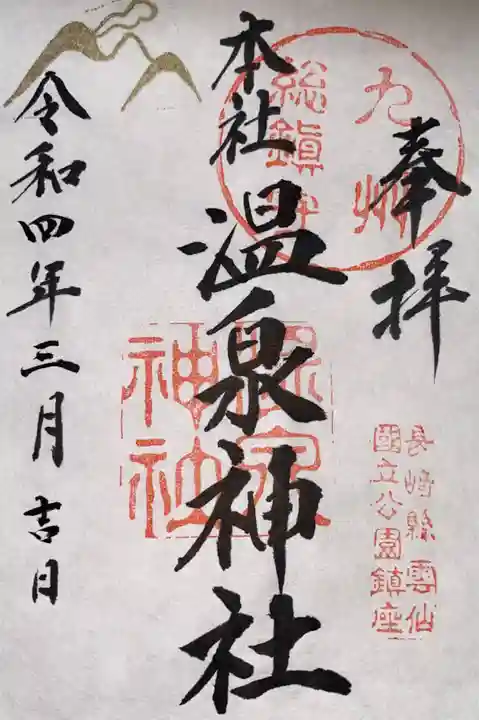 奉拝
九州
総鎮守
長崎縣雲仙
國立公園鎮座
本社
温泉神社
温泉
神社
令和四年三月吉日